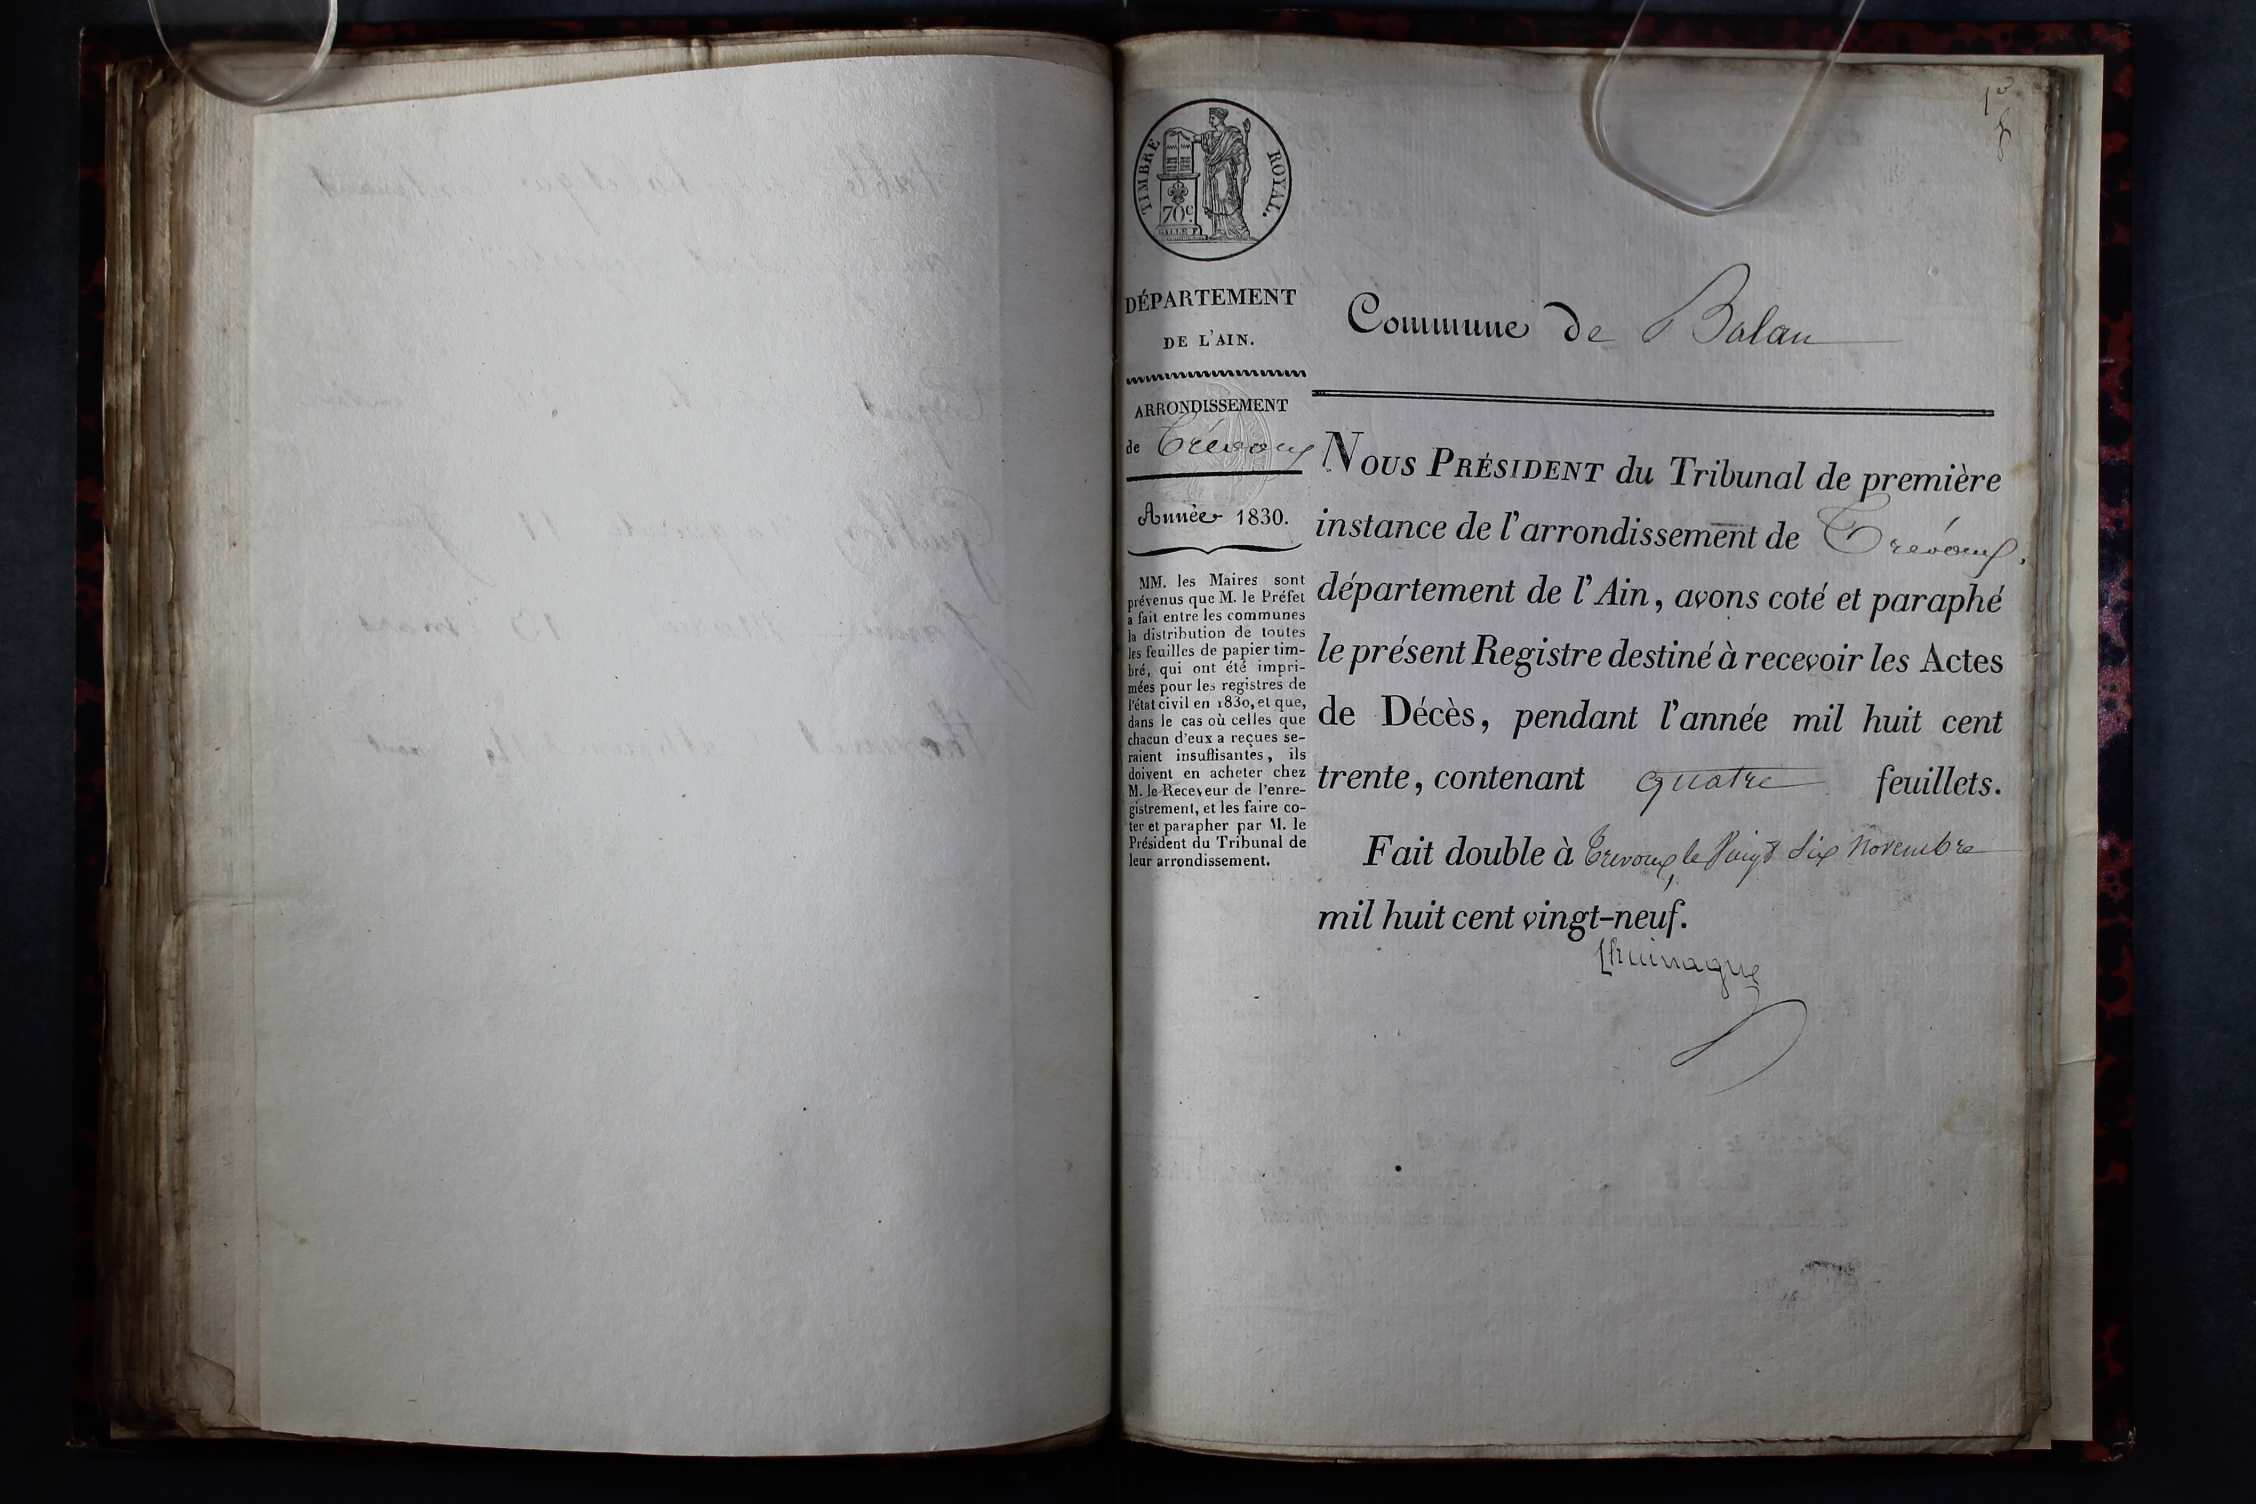 1er
TIMBRE ROYAL.
70c
GALLE F.
DÉPARTEMENT
DE L'AIN.
ARRONDISSEMENT
de Trévoux
Année 1830.
MM. les Maires sont
prévenus que M. le Préfet
a fait entre les communes
la distribution de toutes
les feuilles de papier tim-
bré, qui ont été impri-
mées pour les registres de
l'état civil en 1830, et que,
dans le cas où celles que
chacun d'eux a reçues se-
raient insuffisantes, ils
doivent en acheter chez
M. le Receveur de l'enre-
gistrement, et les faire co-
ter et parapher par M. le
Président du Tribunal de
leur arrondissement.
Commune de Balan
NOUS PRÉSIDENT du Tribunal de première
instance de l'arrondissement de Trévoux,
département de l'Ain, avons coté et paraphé
le présent Registre destiné à recevoir les Actes
de Décès, pendant l'année mil huit cent
trente, contenant quatre feuillets.
Fait double à Trevoux, le Vingt Six Novembre
mil huit cent vingt-neuf.